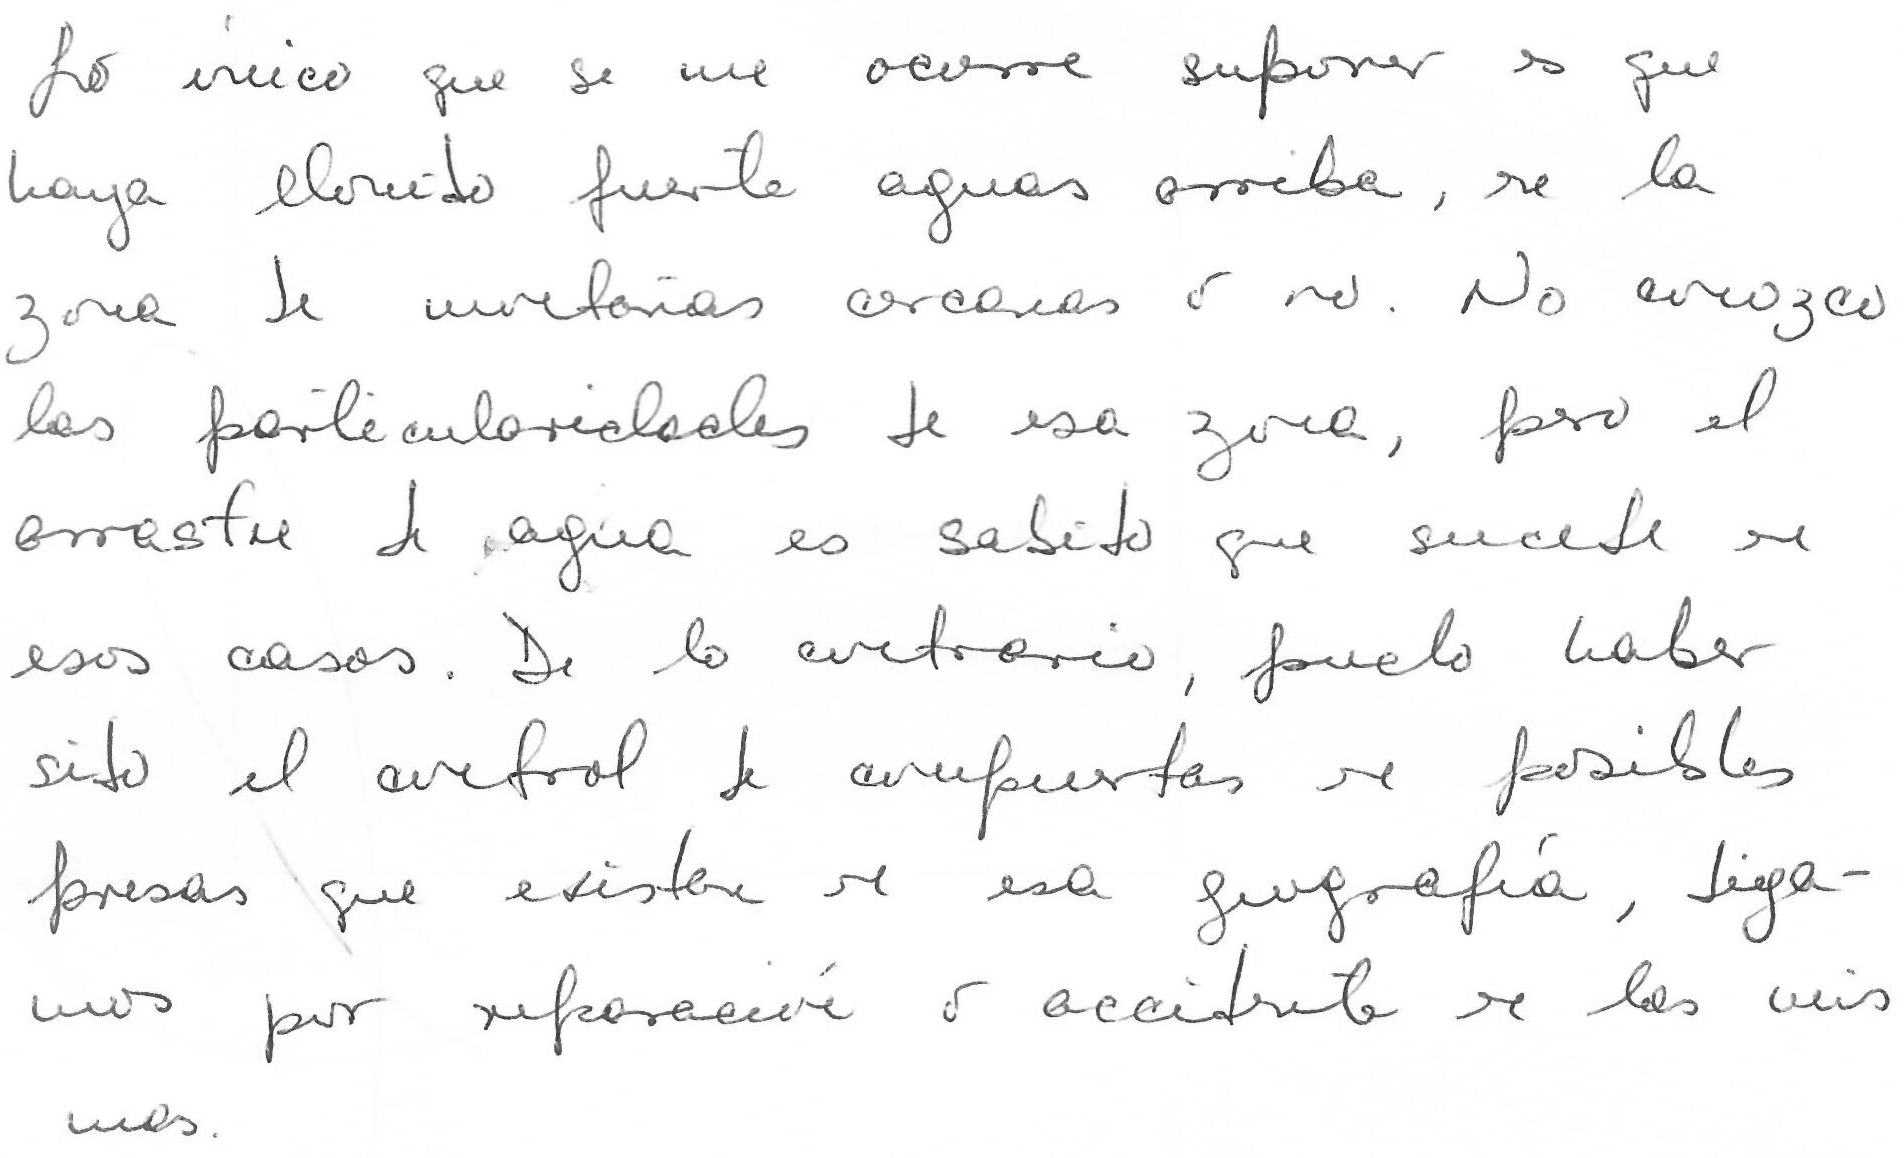 Lo único que se me ocurre suponer es que
haya llovido fuerte aguas arriba, en la
zona de montañas cercanas ó no. No conozco
las particularidades de esa zona, pero el
arrastre de agua es sabido que sucede en
esos casos. De lo contrario, puedo haber
sido el control de compuertas en posibles
presas que existan en esa geografía, diga-
mos por reparación ó accidente en las mis
mas.